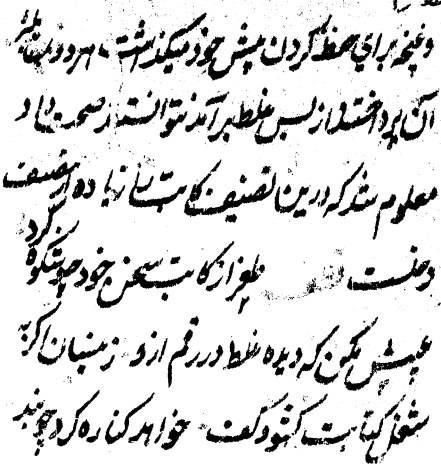 و غنچه برای حفظ کردن پیش خود میگذاشت هر دو
آن پرداختند از بس غلط برآمد نتوانستند صحت داد
معلوم شد که درین تصنیف کاتب را زیاده از مصنف
دخلست طغرا از کاتب سخن خود چو شکوه کرد
عیبش مکن که دیده غلط در رقم ازو زینسان اگر به
شغل کتابت کشود کف خواهد کناره کرد چو